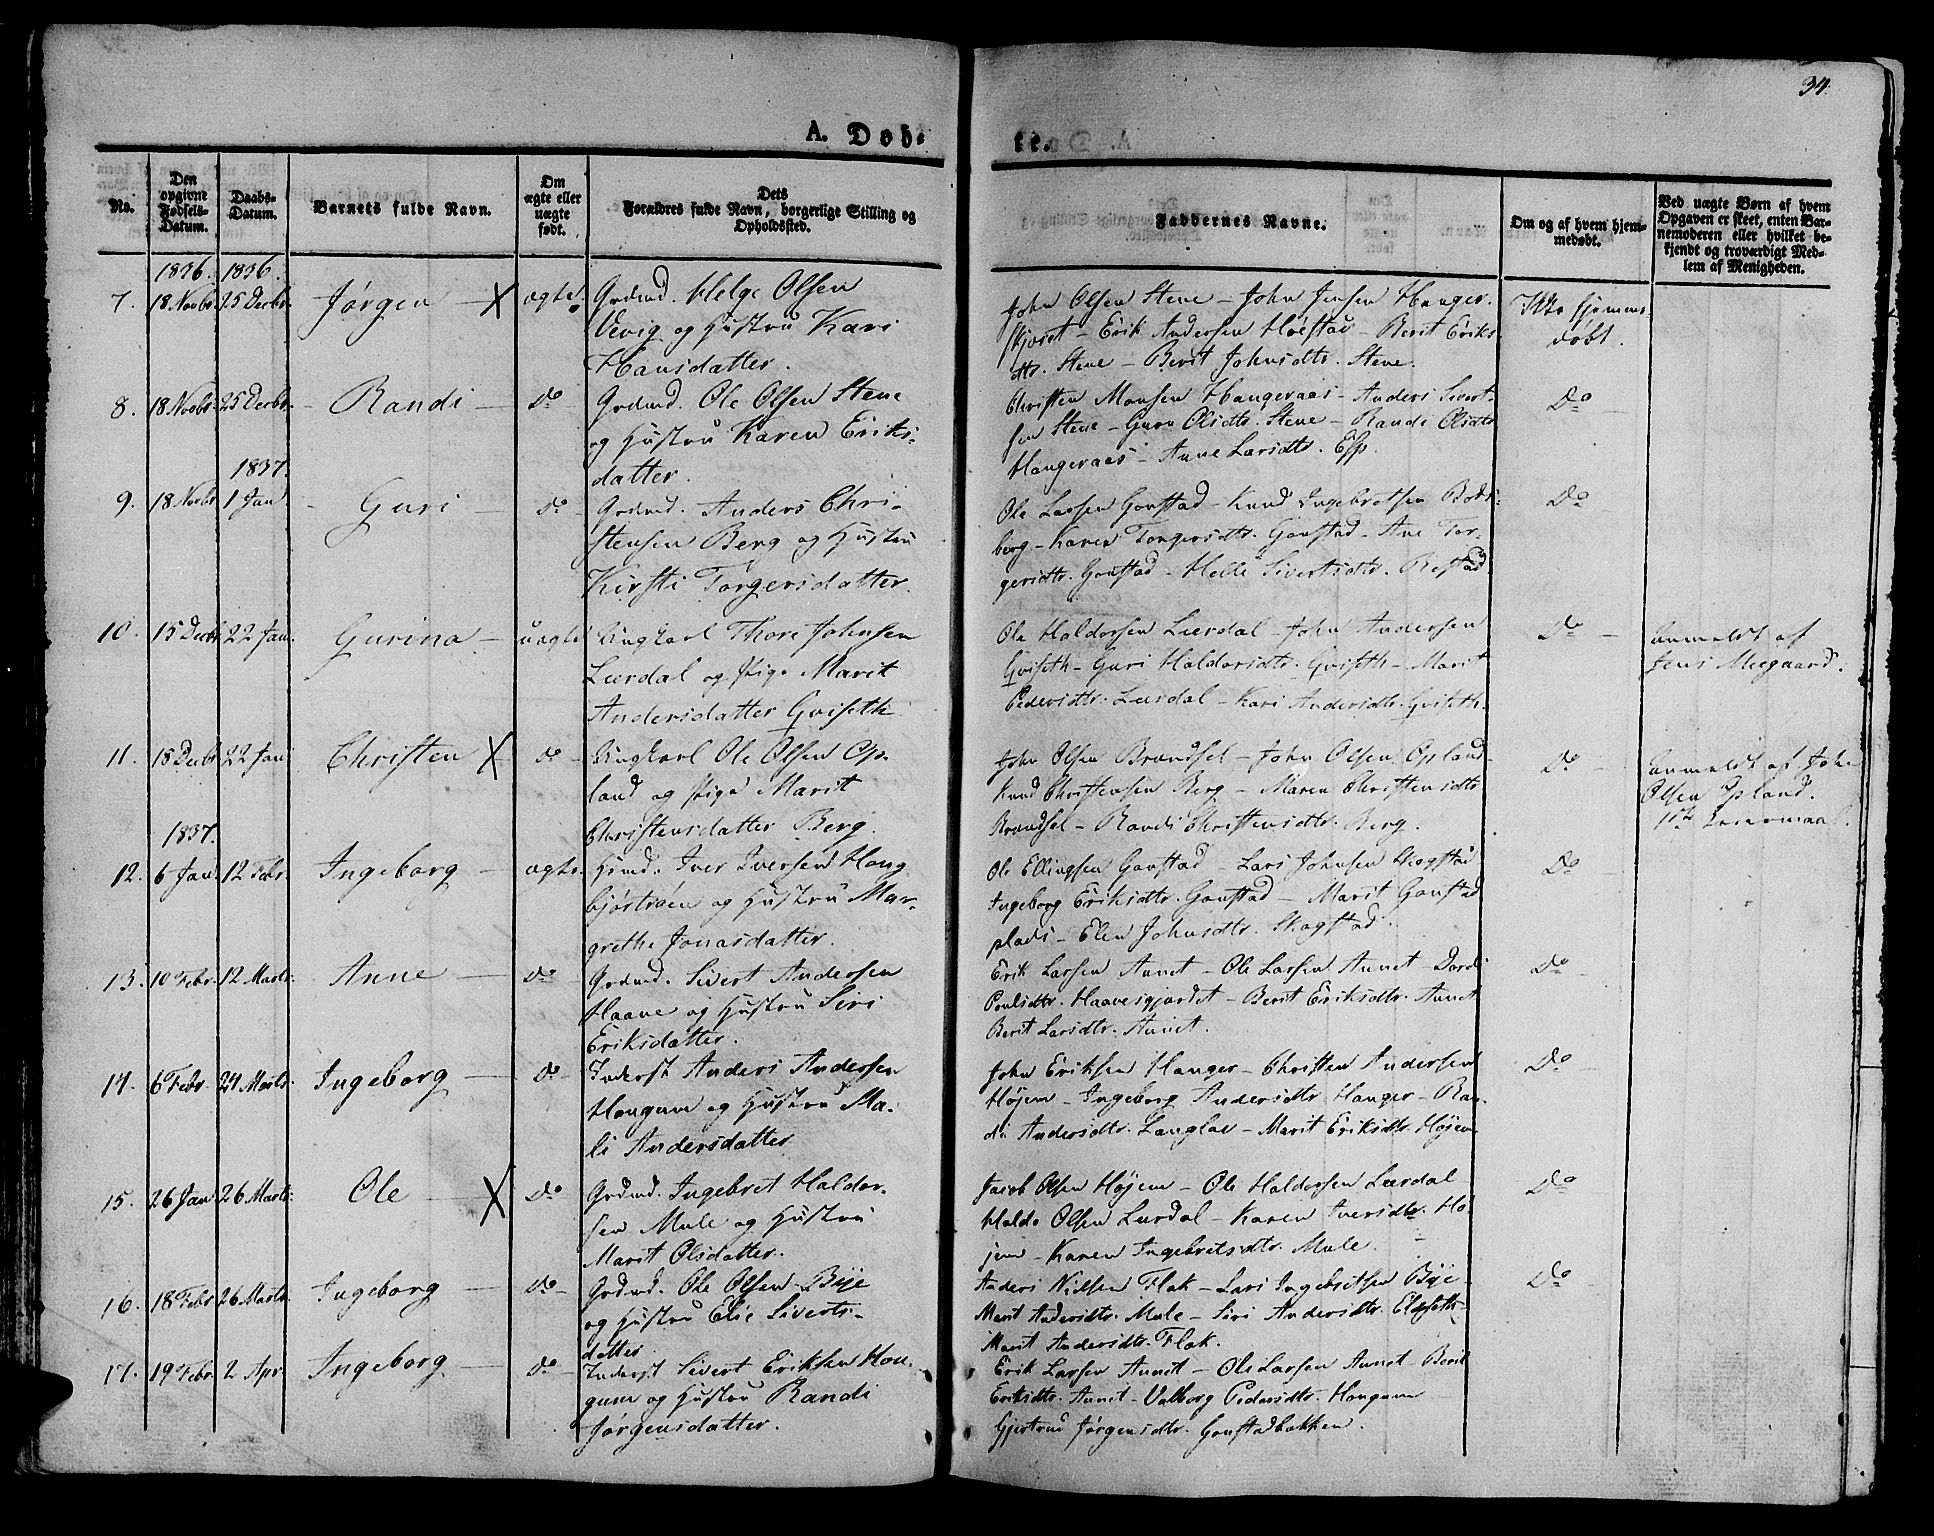 34.
A. Døb-
te.
No.
Den opgivne Fødsels-Datum.
Daabs-Datum.
Barnets fulde Navn.
Om ægte eller uægte født.
Dets Forældres fulde Navn, borgerlige Stilling og Opholdssted.
Faddernes Navne.
Om og af hvem hjemmedøbt.
Ved uægte Børn af hvem Opgaven er skeet, enten Barnemoderen eller hvilket bekjendt og troværdigt Medlem af Menigheden.
1836. 1836.
7. 18 Novbr. 25 Decbr. Jørgen X ægte. Grdmd. Helge Olsen
Vevig og Hustru Kari
Hansdatter.
John Olsen Stene - John Jensen Hanger-
skjvest - Erik Andersen Høestad - Berit Eriks-
dtr. Stene - Berit Johnsdtr. Stene.
Ikke hjemme-
døbt.
8. 18 Novbr. 25 Decbr. - Randi - do - Grdmd. Ole Olsen Stene
og Hustru Karen Eriks-
datter.
Christen Monsen Haugeraas - Anders Sivert-
sen Stene - Guru Olsdtr. Stene - Randi Olsdtr
Haugeraas - Anne Larsdtr. Esp.
Do
1837.
9. 18 Novbr 1 Jan - Guri - do - Grdmd. Anders Chri-
stensen Berg og Hustru
Kirsti Torgersdatter.
Ole Larsen Gonstad - Knud Ingebretsen Bods-
berg - Karen Torgersdtr. Gonstad - Ane Tor-
gersdtr. Gonstad - Helle Sivertsdtr. Restad
Do
10. 15 Decbr. 22 Jan. Gurina - uægte Ungkarl Thore Johnsen
Lærdal og Pige Marit
Andersdatter Gviseth.
Ole Haldorsen Lærdal - John Andersen
Gviseth - Guri Haldorsdtr. Gviseth - Marit
Pedersdtr. Lærdal - Kari Andersdtr. Gviseth.
Do -
Anmeldt af
Jens Meegaard.
11. 18 Decbr 22 Jan Christen X do - Ungkarl Ole Olsen Op-
land og Pige Marit
Christensdatter Berg.
John Olsen Brandsel - John Olsen Opland -
Knud Christensen Berg - Maren Christensdtr
Brandsel - Randi Christensdtr. Berg.
Do -
Anmeldt af John
Olsen Opland.
1ste Leiermaal.
1837.
12. 6 Jan. 12 Febr. Ingeborg - ægte. Hmd. Iver Iversen Haug
bjørtrøen og Hustru Mar-
grethe Jonasdatter.
Ole Ellingsen Gonstad - Lars Johnsen Skogstad
Ingeborg Eriksdtr. Gonstad - Marit Gonstad
plads - Elen Johnsdtr. Skogstad.
Do
13. 10 Febr. 12 Marts. Anne - do - Grdmd. Sivert Andersen
Haave og Hustru Siri
Eriksdatter.
Erik Larsen Aunet - Ole Larsen Aunet - Dordi
Poulsdtr. Haavesgjærdet - Berit Eriksdtr. Aunet
Berit Larsdtr. Aunet.
Do -
14. 6 Febr. 24 Marts. Ingeborg - do - Inderst Anders Andersen
Haugum og Hustru Ma-
li Andersdatter.
John Eriksen Hanger - Christen Andersen
Højem - Ingeborg Andersdtr Hanger - Ran-
di Andersdtr. Langlae - Marit Eriksdtr. Højem
Do
15. 26 Jan 26 Marts. Ole - X do - Grdmd. Ingebret Haldor-
sen Mule og Hustru
Marit Olsdatter.
Jacob Olsen Højem - Ole Haldorsen Lærdal
Haldo Olsen Lurdal - Karen Iversdtr. Hø-
jem - Karen Ingebretsdtr. Mule.
Do -
16. 18 Febr 26 Marts. Ingeborg - do - Grdmd. Ole Olsen Bye
og Hustru Elie Siverts-
datter
Anders Nielsen Flak - Lars Ingebretsen Bye -
Marit Andersdtr. Mule - Siri Andersdtr. Elseseth -
Marit Andersdtr. Flak.
Do -
17. 19 Febr. 2 Apr. Ingeborg - do - Inderst Sivert Eriksen Hou-
gum og Hustru Randi
Jørgensdatter.
Erik Larsen Aunet - Ole Larsen Aunet - Berit
Eriksdtr. Aunet - Valborg Pedersdtr. Hougum
Gjertrud Jørgensdtr. Gonstadbakken.